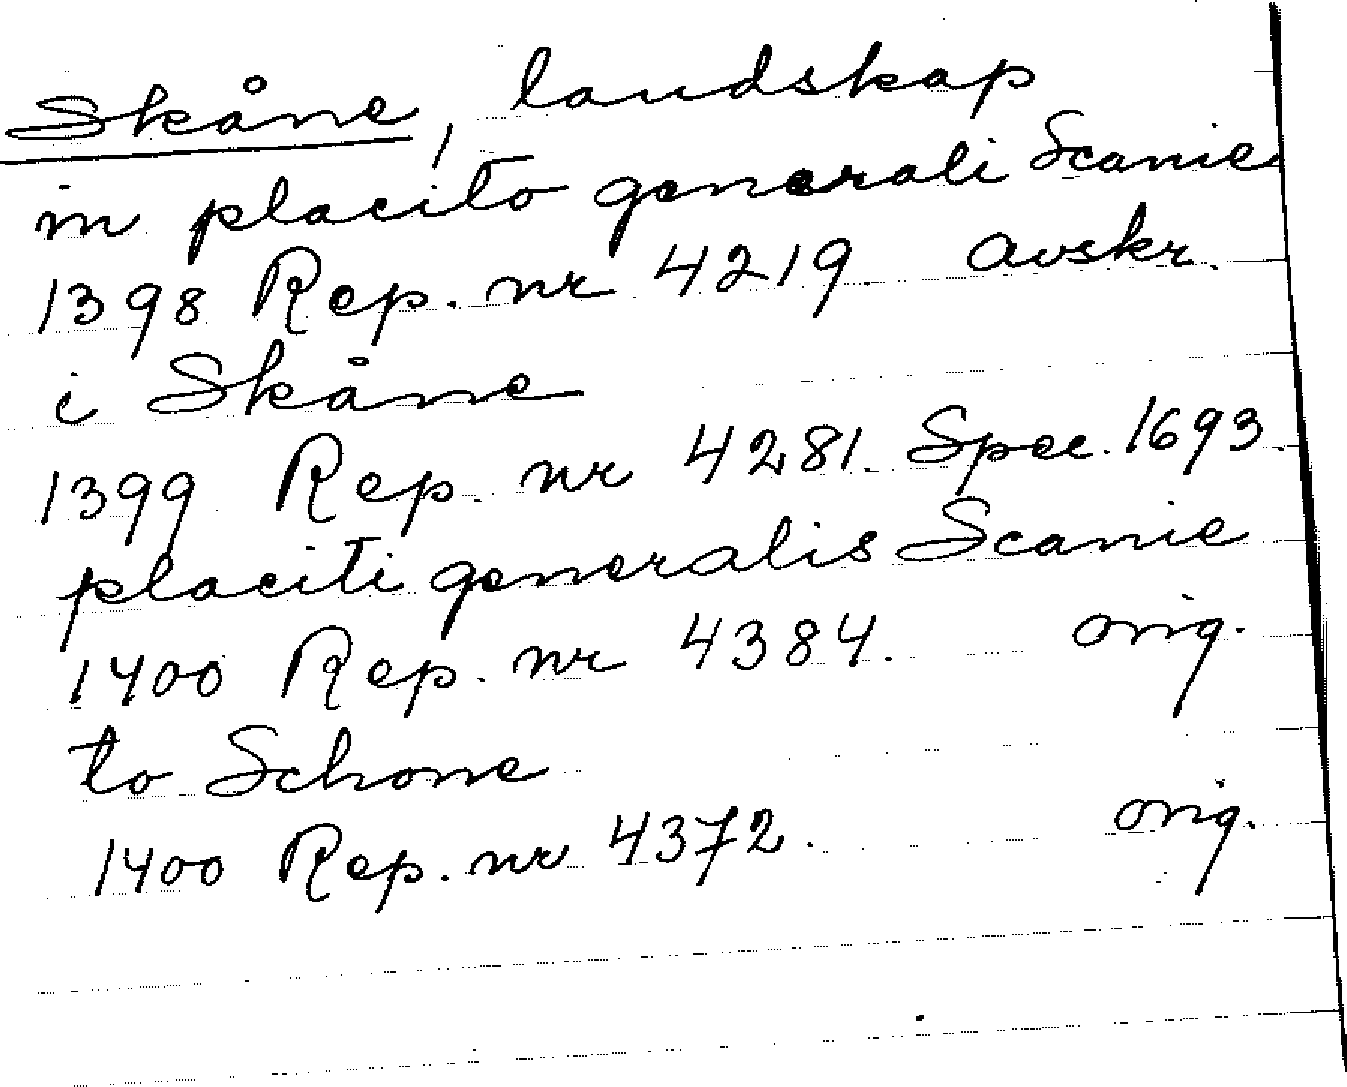 Skåne, landskap
in placito generali Scanie
1398 Rep. nr 4219 avskr.
i Skåne
1399 Rep. nr 4281. Spec. 1693
placiti generalis Scanie
1400 Rep. nr 4384. orig.
to Schone
1400 Rep. nr 4372. orig.